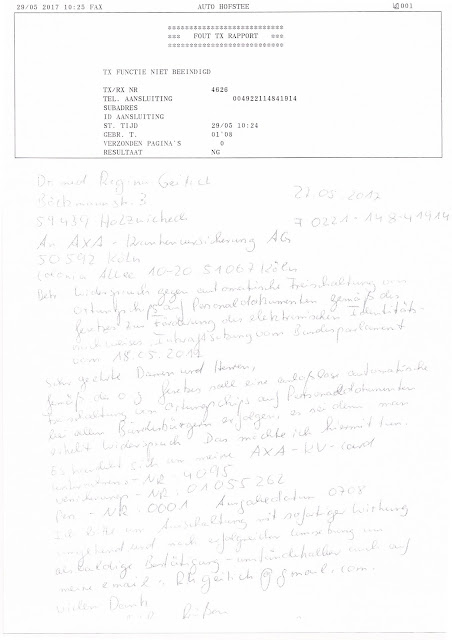 29/05 2017 10:25 FAX AUTO HOFSTEE 001
****************************
*** FOUT TX RAPPORT ***
****************************
TX FUNCTIE NIET BEEINDIGD
TX/RX NR 4626
TEL. AANSLUITING 004922114841914
SUBADRES
ID AANSLUITING
ST. TIJD 29/05 10:24
GEBR. T. 01'08
VERZONDEN PAGINA'S 0
RESULTAAT NG
Dr. med
Böckmannstr. 3 27.05.2017
59439 Holzwickede 0221-148-41914
An AXA - Krankenversicherung AG
50592 Köln
Colonia Allee 10-20 51067 Köln
Betr. Widerspruch gegen automatische Freischaltung von
Ortungschips auf Personaldokumenten gemäß des
Gesetzes zur Förderung des elektronischen Identitäts-
vom Bundesparlament
vom 18.05.2017
Sehr geehrte Damen und Herren,
gemäß des o.g. Gesetzes soll eine automatische
Freischaltung von Ortungschips auf Personaldokumenten
bei allen Bundesbürgern erfolgen, es sei denn man
erhebt Widerspruch. Das möchte ich hiermit tun.
Es handelt sich um meine AXA-KV-Card
- NR. 4095
Versicherungs-NR. 01055262
Pers - NR. 0001 Ausgabedatum 0708
Ich bitte um Ausschaltung mit sofortiger Wirkung
umgehend und nach erfolgreicher Umsetzung um
Bestätigung - auch auf
meine email:
vielen Dank